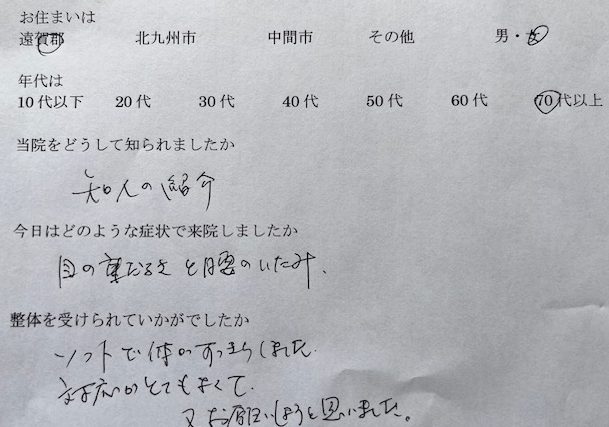 お住まいは
遠賀郡 北九州市 中間市 その他 男・女
年代は
10代以下 20代 30代 40代 50代 60代 70代以上
当院をどうして知られましたか
知人の紹介
今日はどのような症状で来院しましたか
目の重だるさと腰のいたみ、
整体を受けられていかがでしたか
ソフトで体がすっきりしました
対応がとてもよくて、
又お願いしようと思いました。